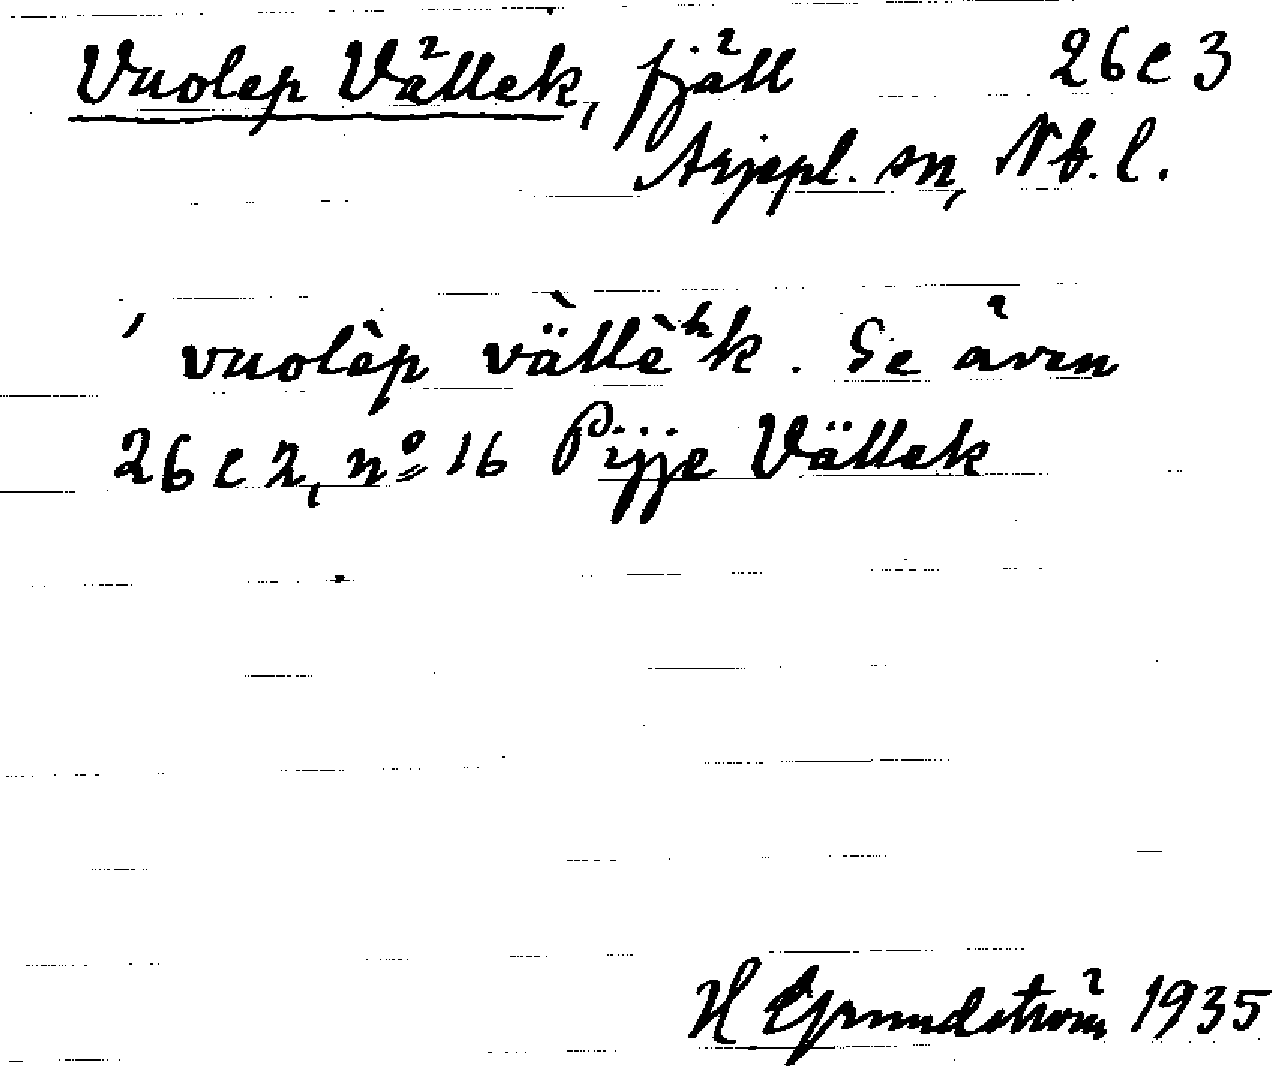 Vuolep Vällek, fjäll 26 C 3
Arjepl. sn, Nb. l.
' vuolèp vällèʰk. Se även
26 C 2, nº 16 Pijje Vällek
H Grundström 1935